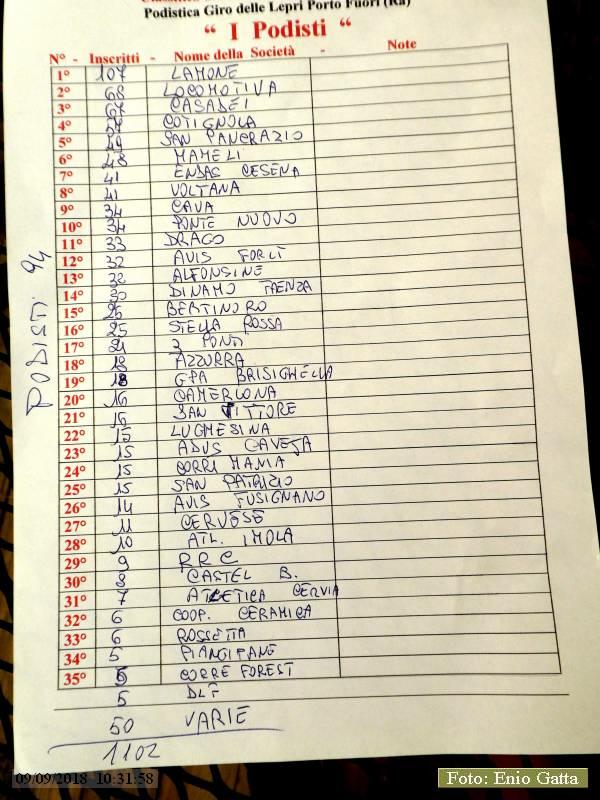 Podistica Giro delle Lepri Porto Fuori (Ra)
“ I Podisti “
N° - Inscritti - Nome della Società - Note
1° 107 LAMONE
2° 68 LOCOMOTIVA
3° 67 CASADEI
4° COTIGNOLA
5° 49 SAN PANCRAZIO
6° 48 MAMELI
7° 41 ENDAS CESENA
8° 41 VOLTANA
9° 34 CAVA
10° 34 PONTE NUOVO
11° 33 DRAGO
12° 32 AVIS FORLÌ
13° 32 ALFONSINE
14° 30 DINAMO FAENZA
15° BERTINORO
16° 25 STELLA ROSSA
17° 21 2 PONTI
18° AZZURRA
19° 18 GPA BRISIGHELLA
20° 16 CAMERLONA
21° SAN VITTORE
22° 15 LUGHESINA
23° 15 ADVS CAVEJA
24° 15 CORRI MANIA
25° 15 SAN PATRIZIO
26° 14 AVIS FUSIGNANO
27° 11 CERVESE
28° 10 ATL. IMOLA
29° 9 RRC
30° 8 CASTEL B.
31° 7 ATLETICA CERVIA
32° 6 COOP. CERAMICA
33° 6 ROSSETTA
34° 5 PIANGIPANE
35° 5 CORRE FOREST
5 DLF
50 VARIE
1102
PODISTI 94
09/09/2018 10:31:58
Foto: Enio Gatta